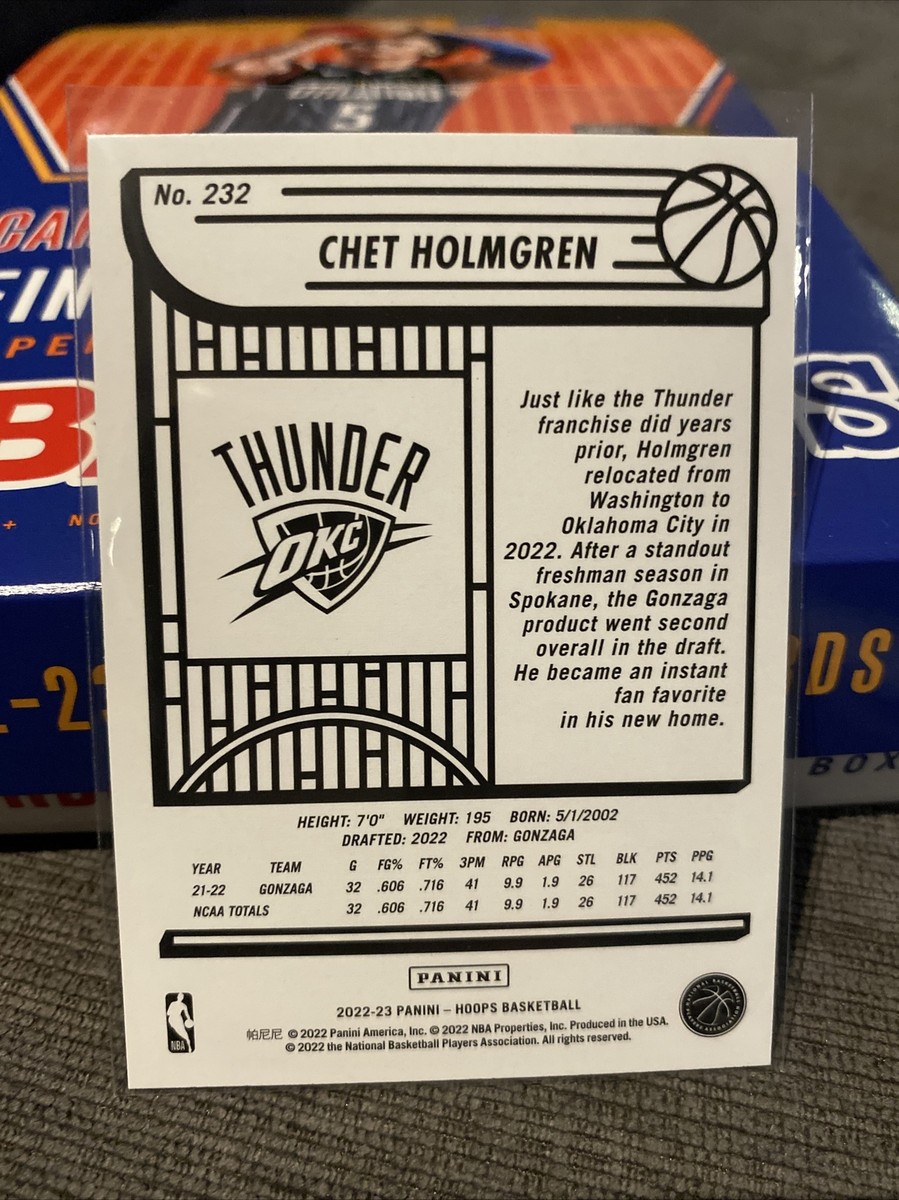 No. 232
CHET HOLMGREN
THUNDER
OKC
Just like the Thunder
franchise did years
prior, Holmgren
relocated from
Washington to
Oklahoma City in
2022. After a standout
freshman season in
Spokane, the Gonzaga
product went second
overall in the draft.
He became an instant
fan favorite
in his new home.
HEIGHT: 7'0" WEIGHT: 195 BORN: 5/1/2002
DRAFTED: 2022 FROM: GONZAGA
YEAR TEAM G FG% FT% 3PM RPG APG STL BLK PTS PPG
21-22 GONZAGA 32 .606 .716 41 9.9 1.9 26 117 452 14.1
NCAA TOTALS 32 .606 .716 41 9.9 1.9 26 117 452 14.1
PANINI
2022-23 PANINI – HOOPS BASKETBALL
帕尼尼 © 2022 Panini America, Inc. © 2022 NBA Properties, Inc. Produced in the USA.
© 2022 the National Basketball Players Association. All rights reserved.
NBA
NATIONAL BASKETBALL
PLAYERS ASSOCIATION
5
BOX